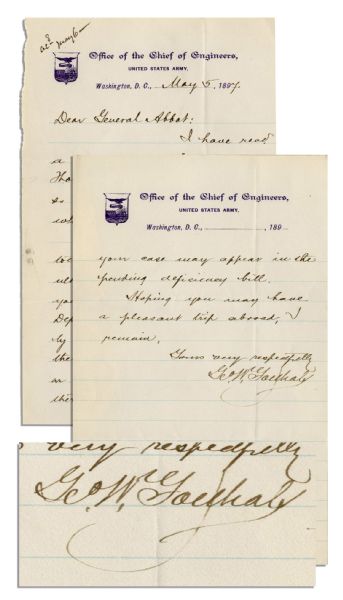 acd May 6
Office of the Chief of Engineers,
UNITED STATES ARMY,
Washington, D. C., May 5, 1897.
Dear General Abbot:
I have recd
a
Office of the Chief of Engineers,
UNITED STATES ARMY,
Washington, D. C., 189
your case may appear in the
pending deficiency bill.
Hoping you may have
a pleasant trip abroad, I
remain,
Yours very respectfully
Geo. W. Goethals
you
Dep
by
the
very respectfully
Geo. W. Goethals